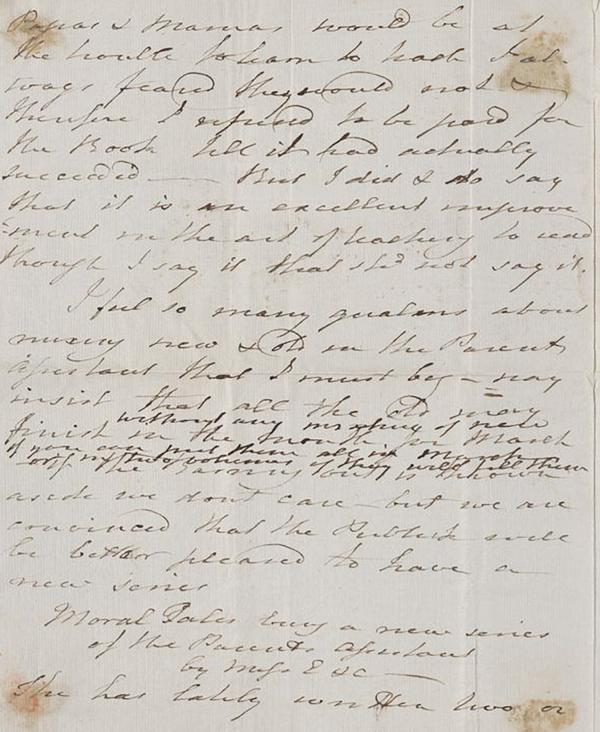 Papas & Mamas would be at
the trouble to learn to teach I al-
ways feared they would not &
therefore I refused to be paid for
the Book till it had actually
succeeded — But I did & do say
that it is an excellent improve
ment in the art of teaching to read
though I say it that shd not say it.
I feel so many qualms about
mixing new & old in the Parents
Assistant that I must beg — nay
insist that all the old may
without any mixing of new
finish in the month for March
if you can put them all in March
or in two volumes if they will fill them
the is thrown
aside we don't care but we are
convinced that the Publick will
be better pleased to have a
new series
Moral Tales being a new series
of the Parents Assistant
by Miss E &c —
She has lately written two or